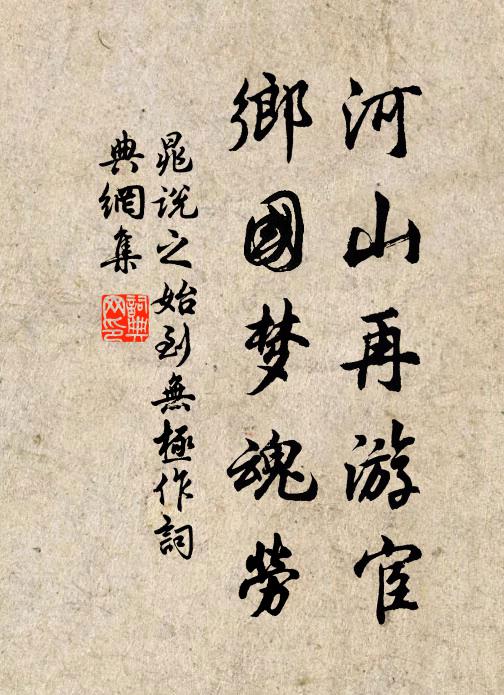 河山再游宦
鄉國梦魂勞
晁说之始到無極作詞
典網集
詞典
网印